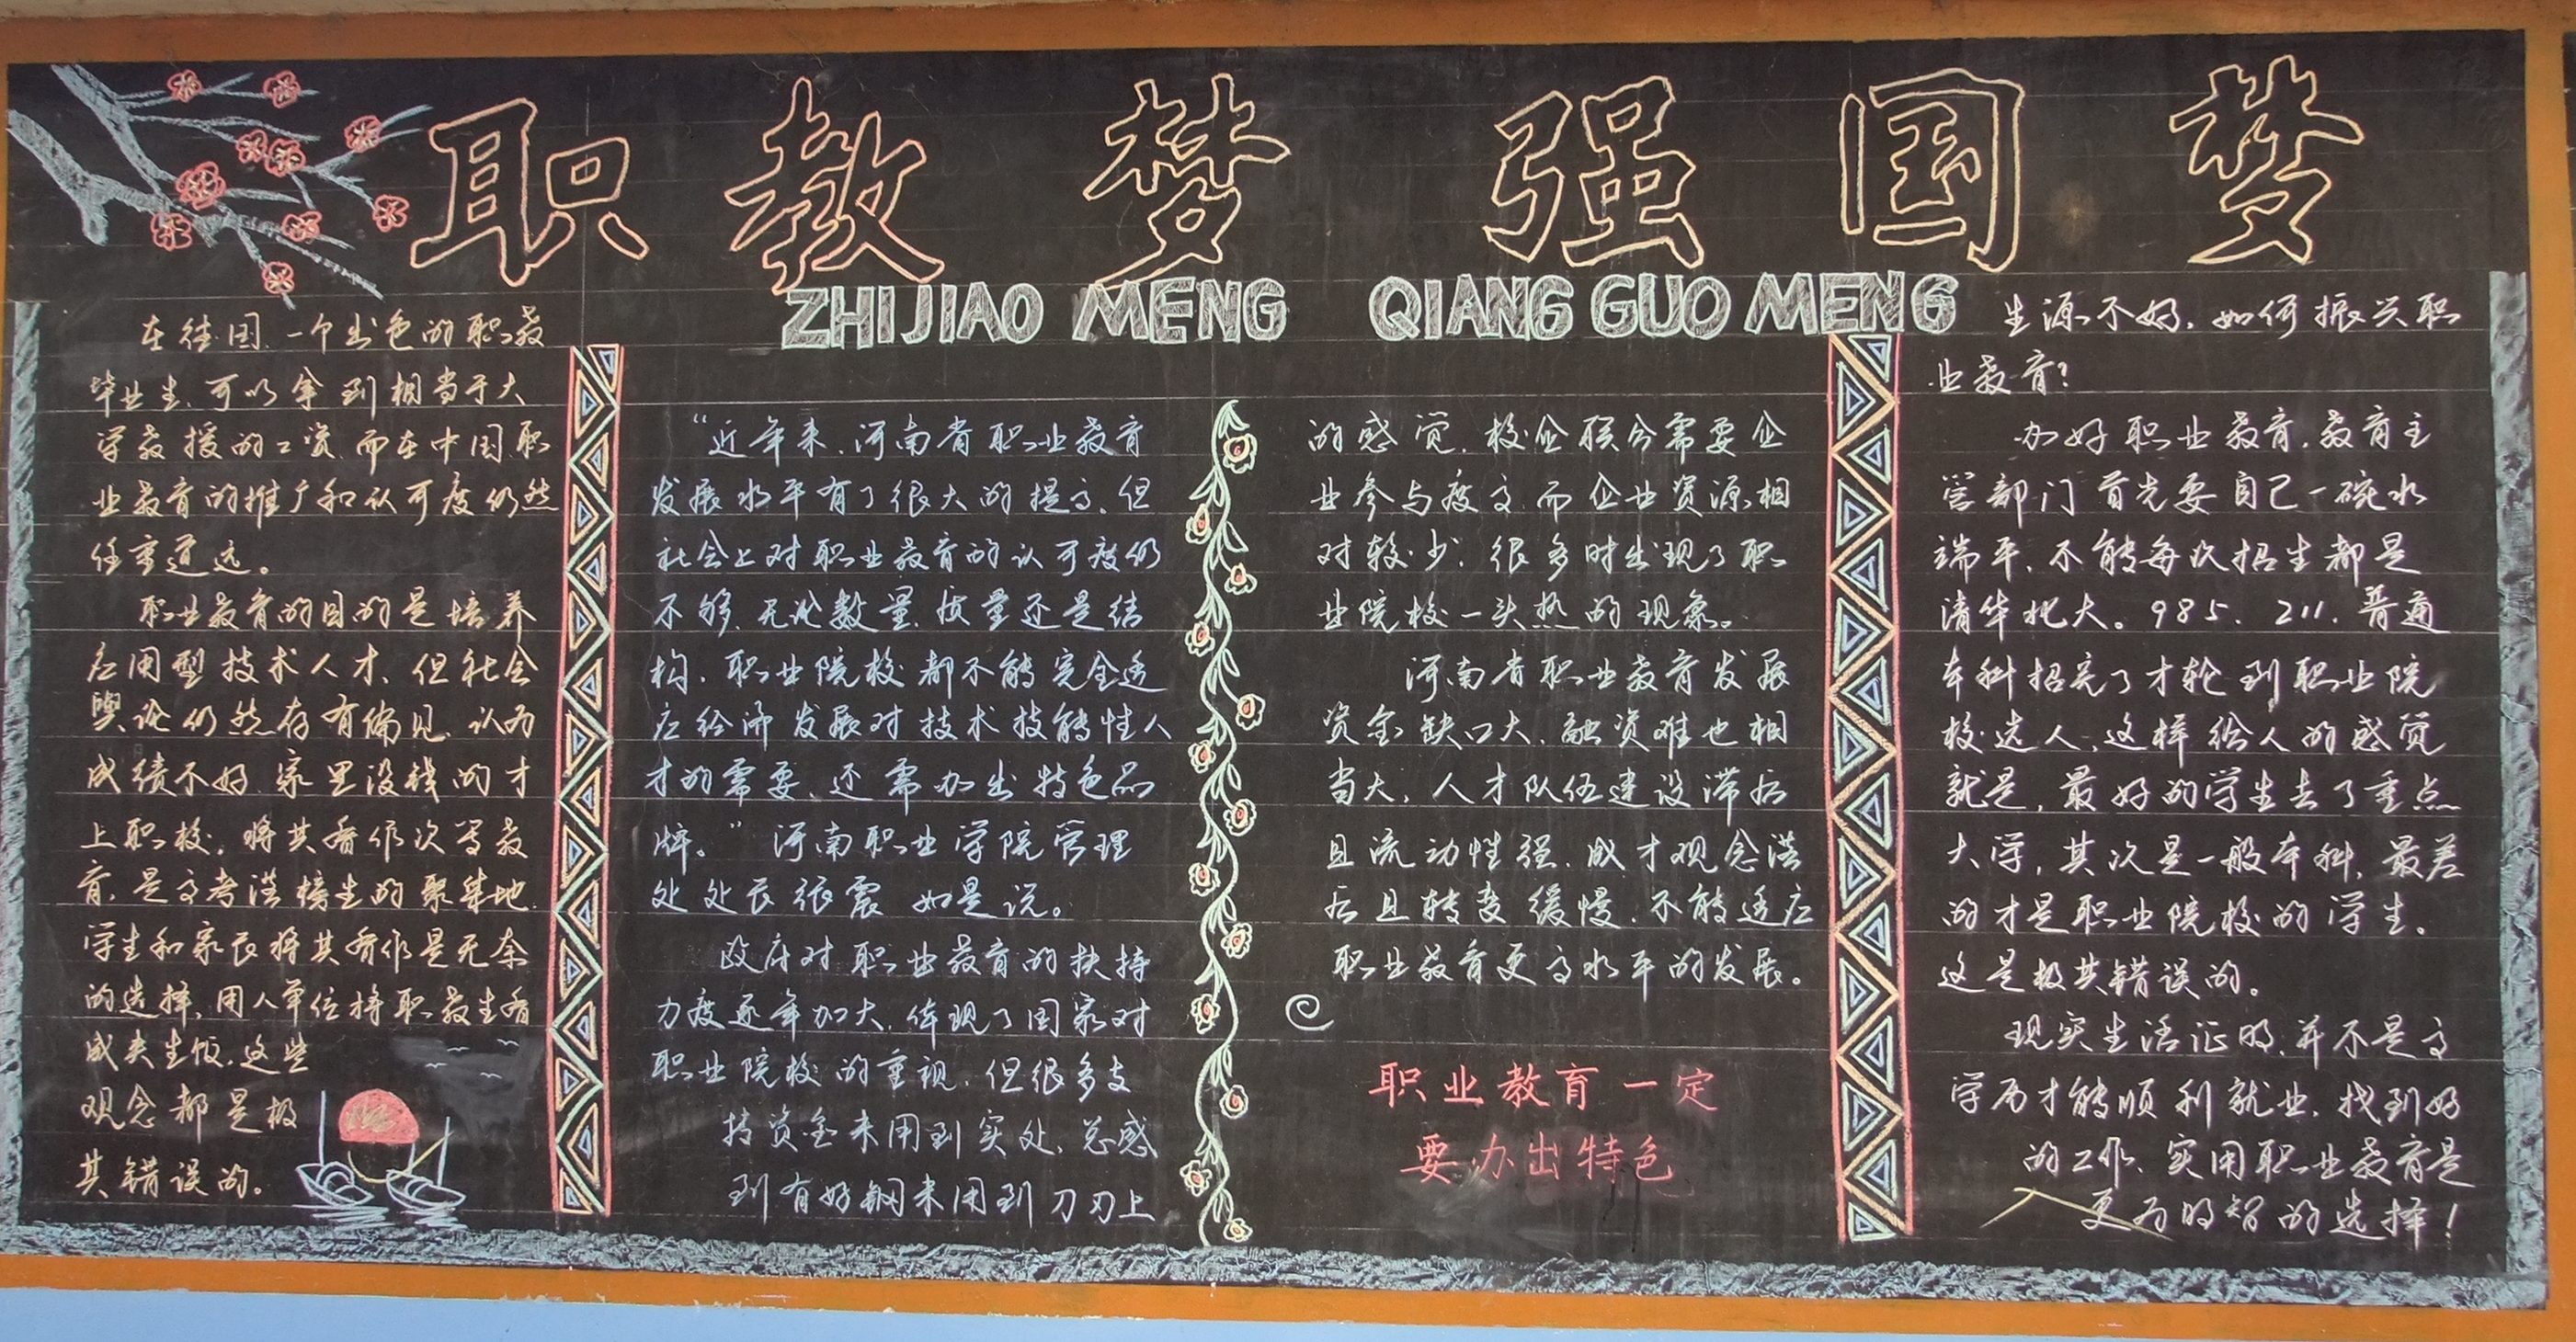 职教梦 强国梦
ZHIJIAO MENG QIANG GUO MENG
在德国,一个出色的职教
毕业生,可以拿到相当于大
学教授的工资,而在中国,职
业教育的推广和认可度仍然
任重道远。
职业教育的目的是培养
应用型技术人才,但社会
舆论仍然存有偏见,认为
成绩不好,家里没钱的才
上职校,将其看作次等教
育,是高考落榜生的聚集地,
学生和家长将其看作是无奈
的选择,用人单位将职教生看
成夹生饭,这些
观念都是极
其错误的。
“近年来,河南省职业教育
发展水平有了很大的提高,但
社会上对职业教育的认可度仍
不够,无论数量,质量还是结
构,职业院校都不能完全适
应经济发展对技术技能性人
才的需要,还需办出特色品
牌。”河南职业学院管理
处处长张震如是说。
政府对职业教育的扶持
力度逐年加大,体现了国家对
职业院校的重视,但很多支
持资金未用到实处,总感
到有好钢未用到刀刃上
的感觉,校企联合需要企
业参与度高,而企业资源相
对较少,很多时出现了职
业院校一头热的现象。
河南省职业教育发展
资金缺口大,融资难也相
当大,人才队伍建设滞后
且流动性强,成才观念落
后且转变缓慢,不能适应
职业教育更高水平的发展。
职业教育一定
要办出特色
生源不好,如何振兴职
业教育?
办好职业教育,教育主
管部门首先要自己一碗水
端平,不能每次招生都是
清华北大。985.211.普通
本科招完了才轮到职业院
校选人,这样给人的感觉
就是,最好的学生去了重点
大学,其次是一般本科,最差
的才是职业院校的学生.
这是极其错误的。
现实生活证明,并不是高
学历才能顺利就业,找到好
的工作,实用职业教育是
更为明智的选择!